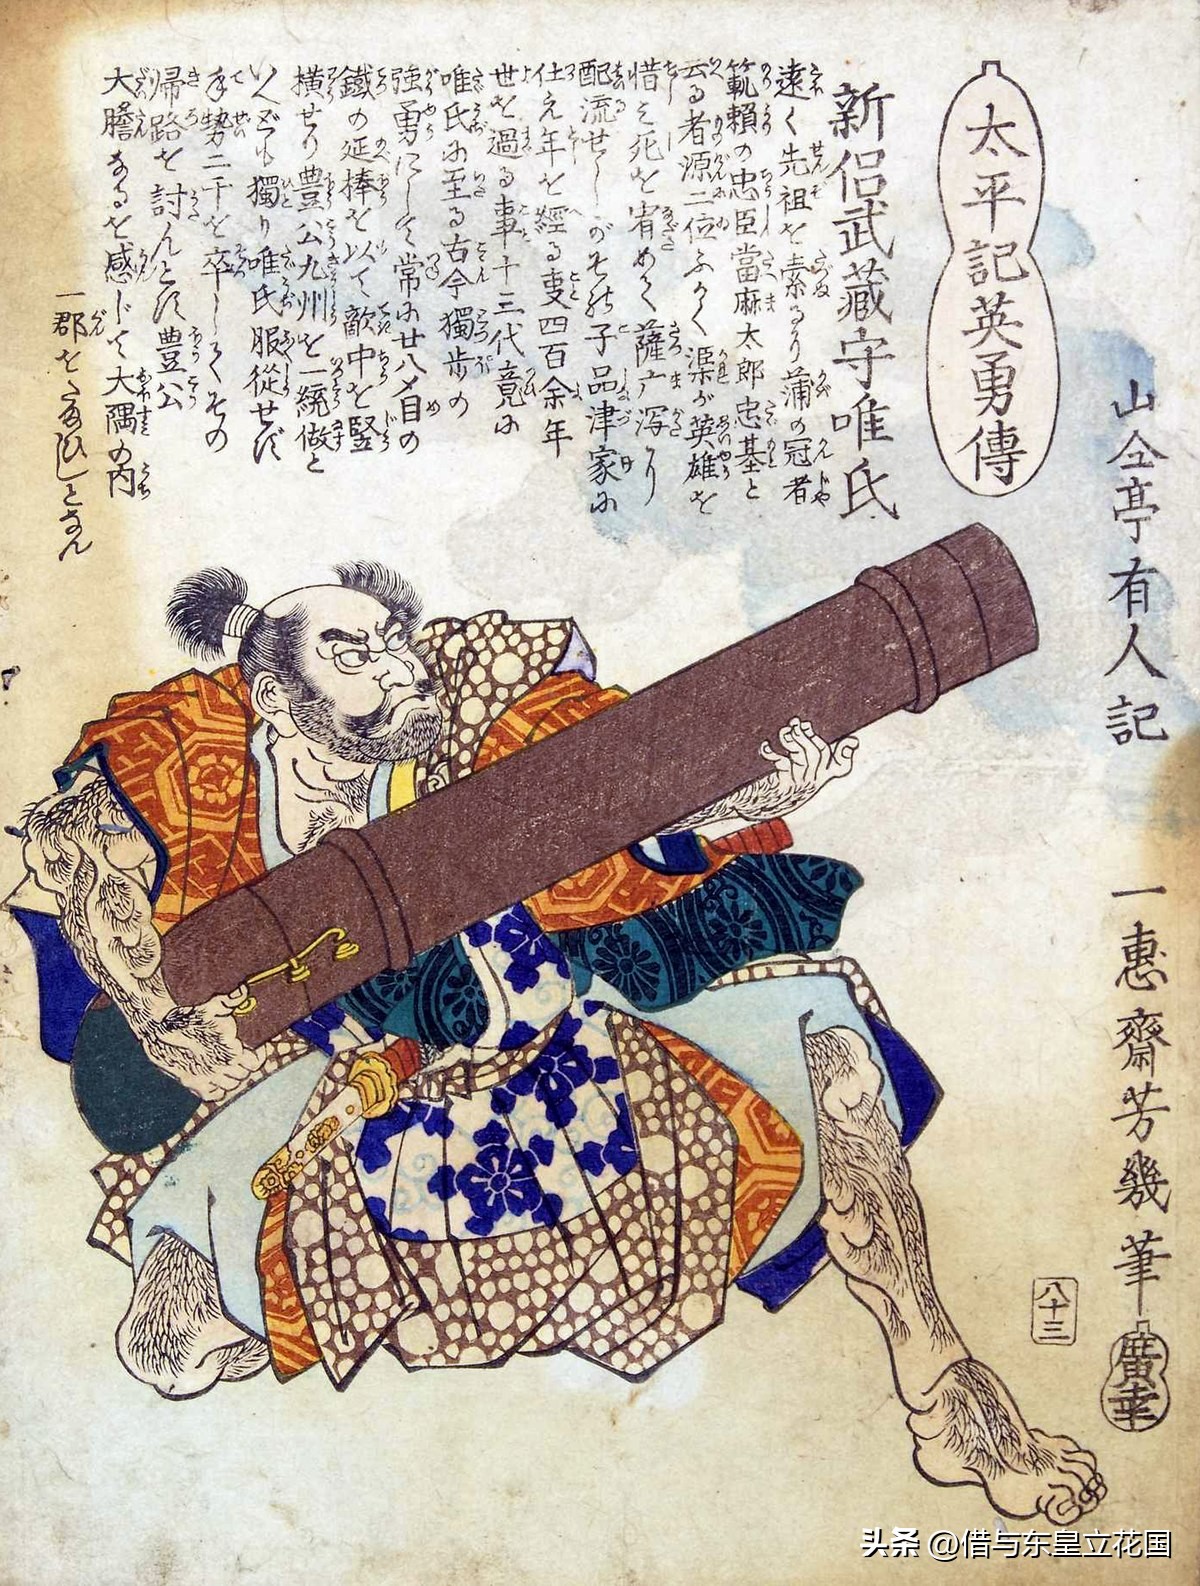 太平記英勇傳
山々亭有人記
新侶武藏守唯氏
遠く先祖を素るに蒲の冠者
範頼の忠臣當麻太郎忠基と
云る者源二位ふかく渠が英雄を
惜み死を宥めて薩广泻に
配流せしがその子品津家に
仕え年を經る事四百余年
世を過る事十三代竟に
唯氏に至る古今獨歩の
強勇にして常に廿八〆目の
鐵の延棒を以て敵中を竪
横せり豊公九州を一統做と
いへども獨り唯氏服從せず
手勢二千を卒してその
帰路を討んとす豊公
大膽なるを感じて大隅の内
一郡をたまひしとなん
一惠齋芳幾筆
八十三
廣幸
头条 @借与东皇立花国